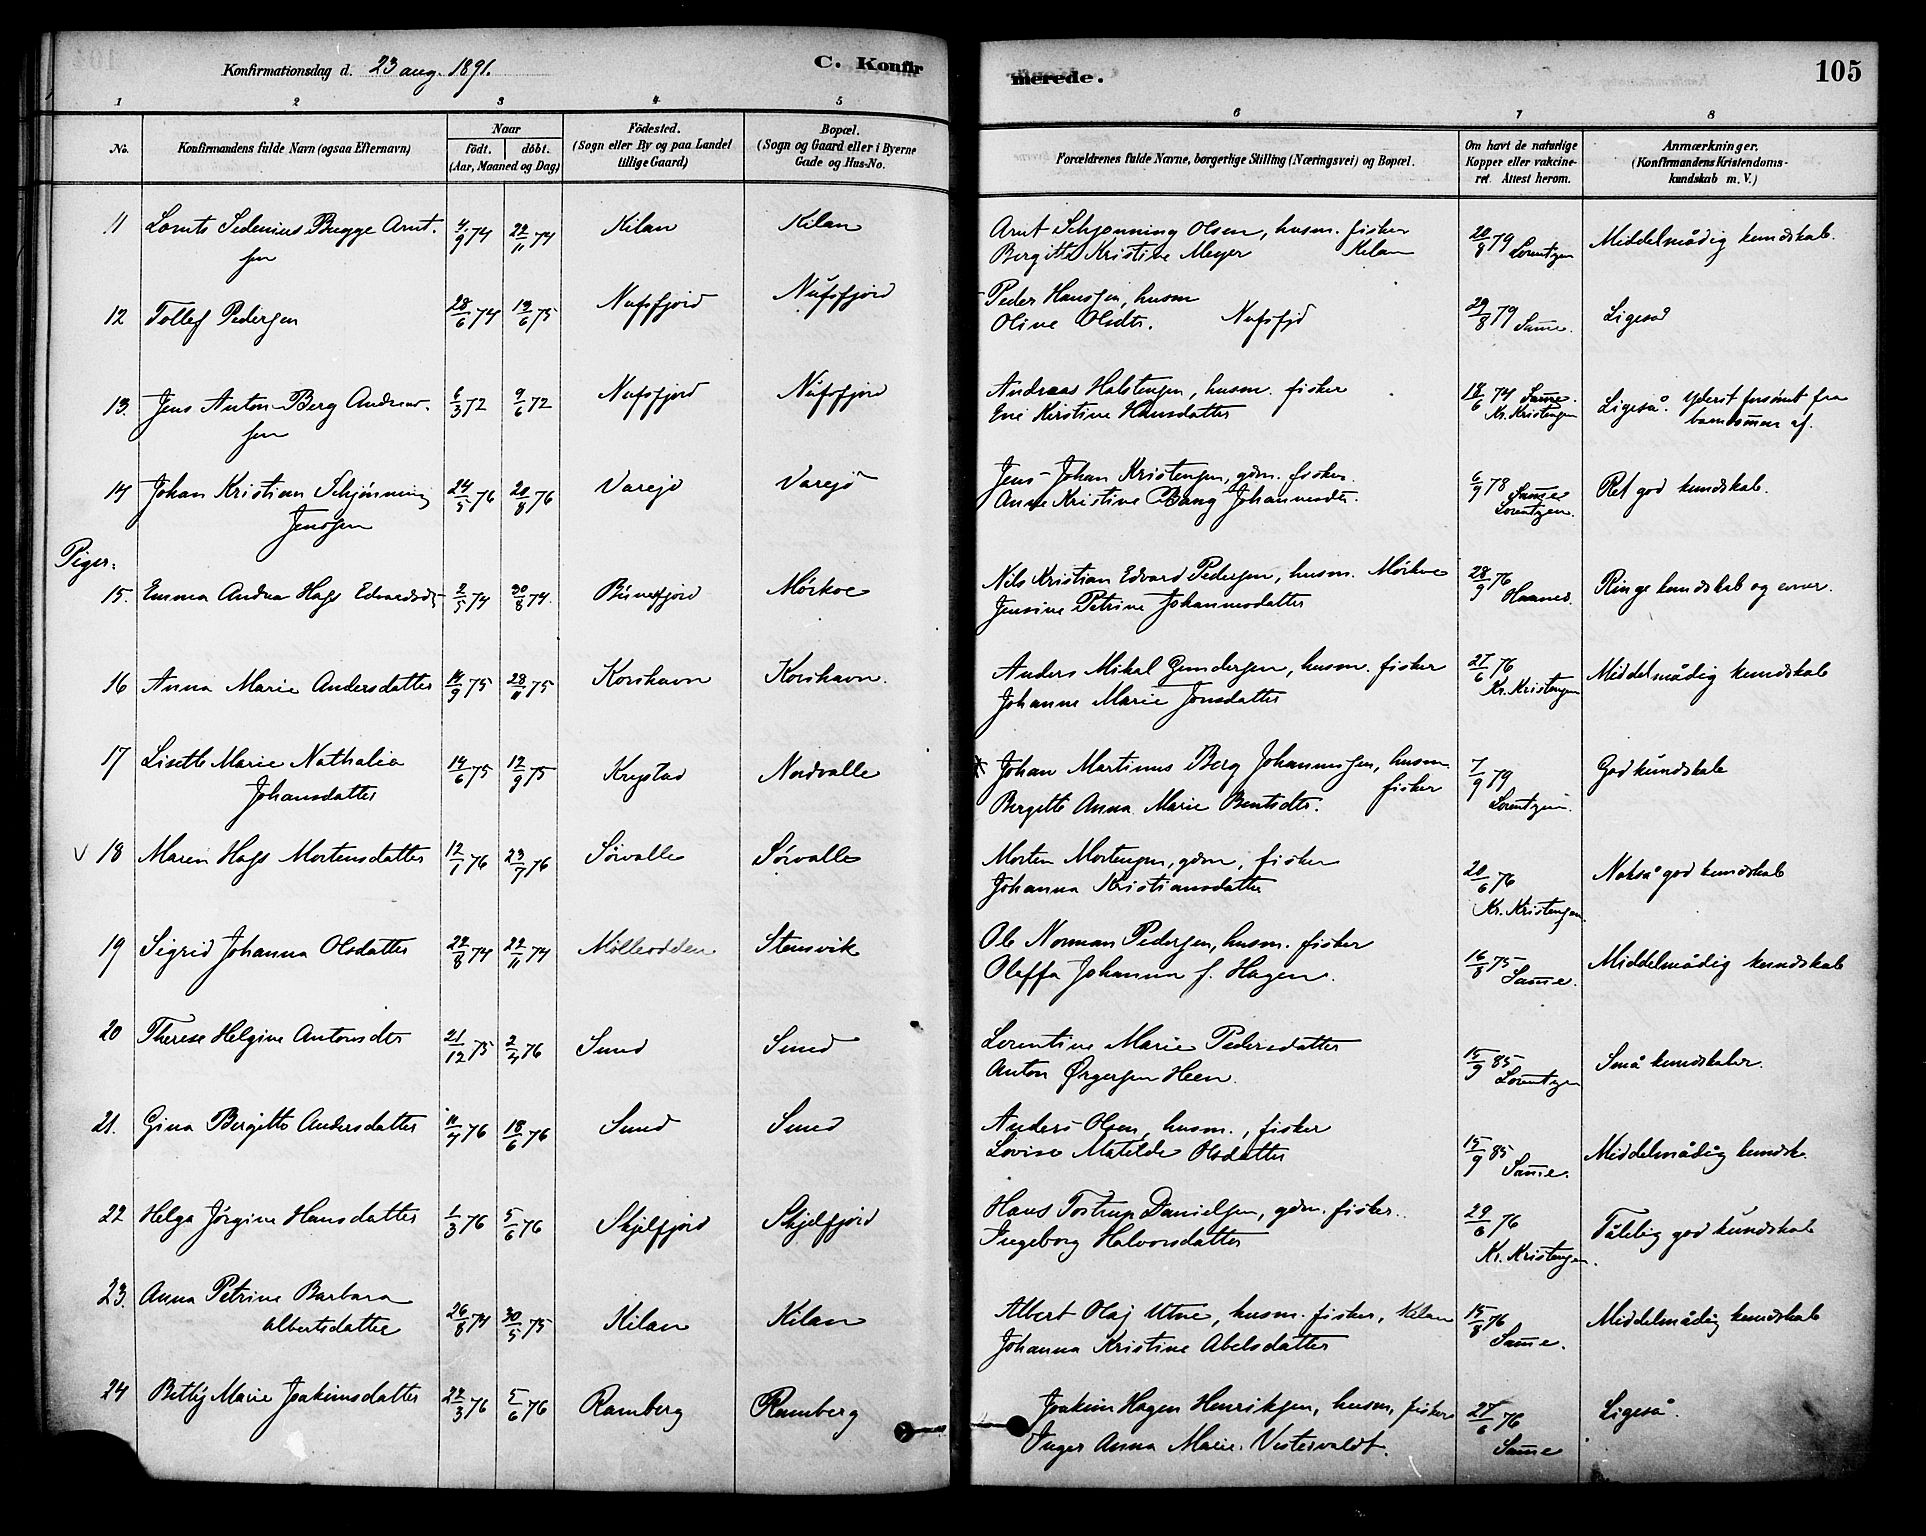 Konfirmationsdag d. 23 aug. 1891. C. Konfir
merede. 105
1 2 3 4 5 6 7 8
No. Konfirmandens fulde Navn (ogsaa Efternavn) Naar födt. döbt. (Aar, Maaned og Dag) Födested. (Sogn eller By og paa Landet tillige Gaard) Bopæl. (Sogn og Gaard eller i Byerne Gade og Hus-No. Forældrenes fulde Navne, borgerlige Stilling (Næringsvei) og Bopæl. Om havt de naturlige Kopper eller vakcineret. Attest herom. Anmærkninger. (Konfirmandens Kristendomskundskab m. V.)
11 Lornts Sedenius Bugge Arnt- 4/9 74 22/11 74 Kilan Kilan Arnt Schjønning Olsen, husm. fisker 20/8 79 Lorentzen Middelmådig kundskab.
sen Bergitte Kristine Meyer Kilan
12 Tollef Pedersen 28/6 74 13/6 75 Nufsfjord Nufsfjord Peder Hanssen, husm 29/8 79 Samme. Ligeså
Oline Olsdtr. Nufsfjd
13. Jens Anton Berg Andreas- 6/3 72 9/6 72 Nufsfjord Nufsfjord Andreas Halstensen, husm. fisker 18/6 74 Samme. Ligeså. Yderst forsømt fra
sen Ene Kirstine Hansdatter Kr. Kristensen barndommen af.
14 Johan Kristian Schjønning 24/5 76 20/8 76 Varejd Varejd Jens Johan Kristensen, gdm. fisker. 6/9 78 Samme Ret god kundskab.
Jenssen Anne Kristine Bang Johannesdtr. Lorentzen.
Piger:
15. Emma Andrea Hags Edvardsdtr 2/5 74 30/8 74. Bunesfjord Mørkve Nils Kristian Edvard Pedersen, husm. Mørkve 28/9 76 Ringe kundskab og evner.
Jensine Petrine Johannesdatter
16 Anna Marie Andersdatter 14/9 75 28/11 75 Korshavn Korshavn. Anders Mikal Gundersen, husm. fisker 27/6 76 Middelmådig kundskab
Johanne Marie Jonsdatter Kr. Kristensen
17 Lisette Marie Nathalia 14/6 75 12/9 75 Krystad Nordvalle Johan Martinus Berg Johannessen, husm 7/9 79 God kundskab
Johansdatter fisker Lorentzen.
Bergitte Anna Marie Berntsdtr.
18 Maren Hags Mortensdatter 12/1 76 23/7 76 Sørvalle Sørvalle Morten Mortensen, gdm, fisker 20/6 76 Nokså god kundskab
Johanna Kristiansdatter Kr. Kristensen
19 Sigrid Johanna Olsdatter 22/8 74 22/11 74 Mølleodden Stensvik Ole Norman Pedersen, husm. fisker 16/8 75 Middelmådig kundskab
Oleffa Johanna f. Hagen. Samme.
20 Therese Helgine Antonsdtr 21/12 75 2/4 76 Sund Sund Lorentine Marie Pedersdatter 15/9 85 Små kundskaber.
Anton Ørgersen Heen. Lorentzen
21. Gina Bergitte Andersdatter 11/4 76 18/6 76 Sund Sund Anders Olsen, husm., fisker 15/9 85 Middelmådig kundsk.
Lovise Matilde Olsdatter Samme.
22 Helga Jørgine Hansdatter 1/3 76 5/6 76 Skjelfjord Skjelfjord Hans Tostrup Danielsen, gdm. fisker. 29/6 76 Tålelig god kundskab
Ingeborg Halvorsdatter Kr. Kristensen.
23. Anna Petrine Barbara 26/8 74 30/5 75 Kilan Kilan Albert Olaj Utne, husm. fisker, Kilan 15/8 76 Middelmådig kundskab
Albertsdatter Johanna Kristine Abelsdatter Samme.
24 Betty Marie Joakimsdatter 22/3 76 5/6 76 Ramberg Ramberg Joakim Hagen Henriksen, husm, fisker 27/6 76 Ligeså.
Inger Anna Marie Vestervaldt. Samme